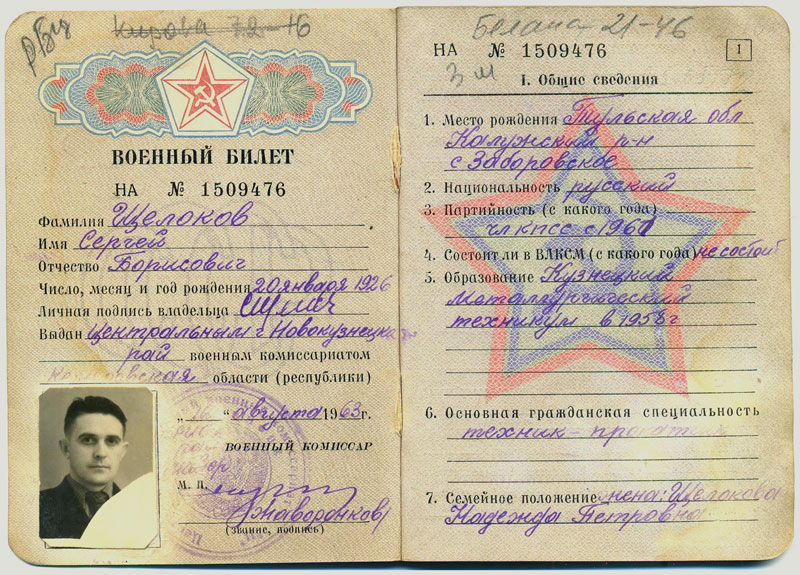 Кирова 72-16
ВОЕННЫЙ БИЛЕТ
НА № 1509476
Фамилия Щелоков
Имя Сергей
Отчество Борисович
Число, месяц и год рождения 20 января 1926
Личная подпись владельца
Выдан Центральным г. Новокузнецка
рай военным комиссариатом
области (республики)
" 26 " августа 1963 г.
ВОЕННЫЙ КОМИССАР
М. П.
Жаворонков
(звание, подпись)
Белана 21-46
НА № 1509476
1
3 м
I. Общие сведения
1. Место рождения Тульская обл
Калужский р-н
с Заборовское
2. Национальность русский
3. Партийность (с какого года)
чл КПСС с 1960
4. Состоит ли в ВЛКСМ (с какого года) не состоит
5. Образование Кузнецкий
Металлургический
техникум в 1958 г
6. Основная гражданская специальность
техник-
7. Семейное положение жена: Щелокова
Надежда Петровна